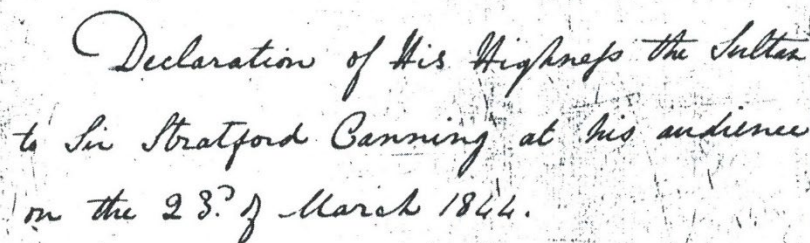 Declaration of His Highness the Sultan
to Sir Stratford Canning at his audience
on the 23.d of March 1844.